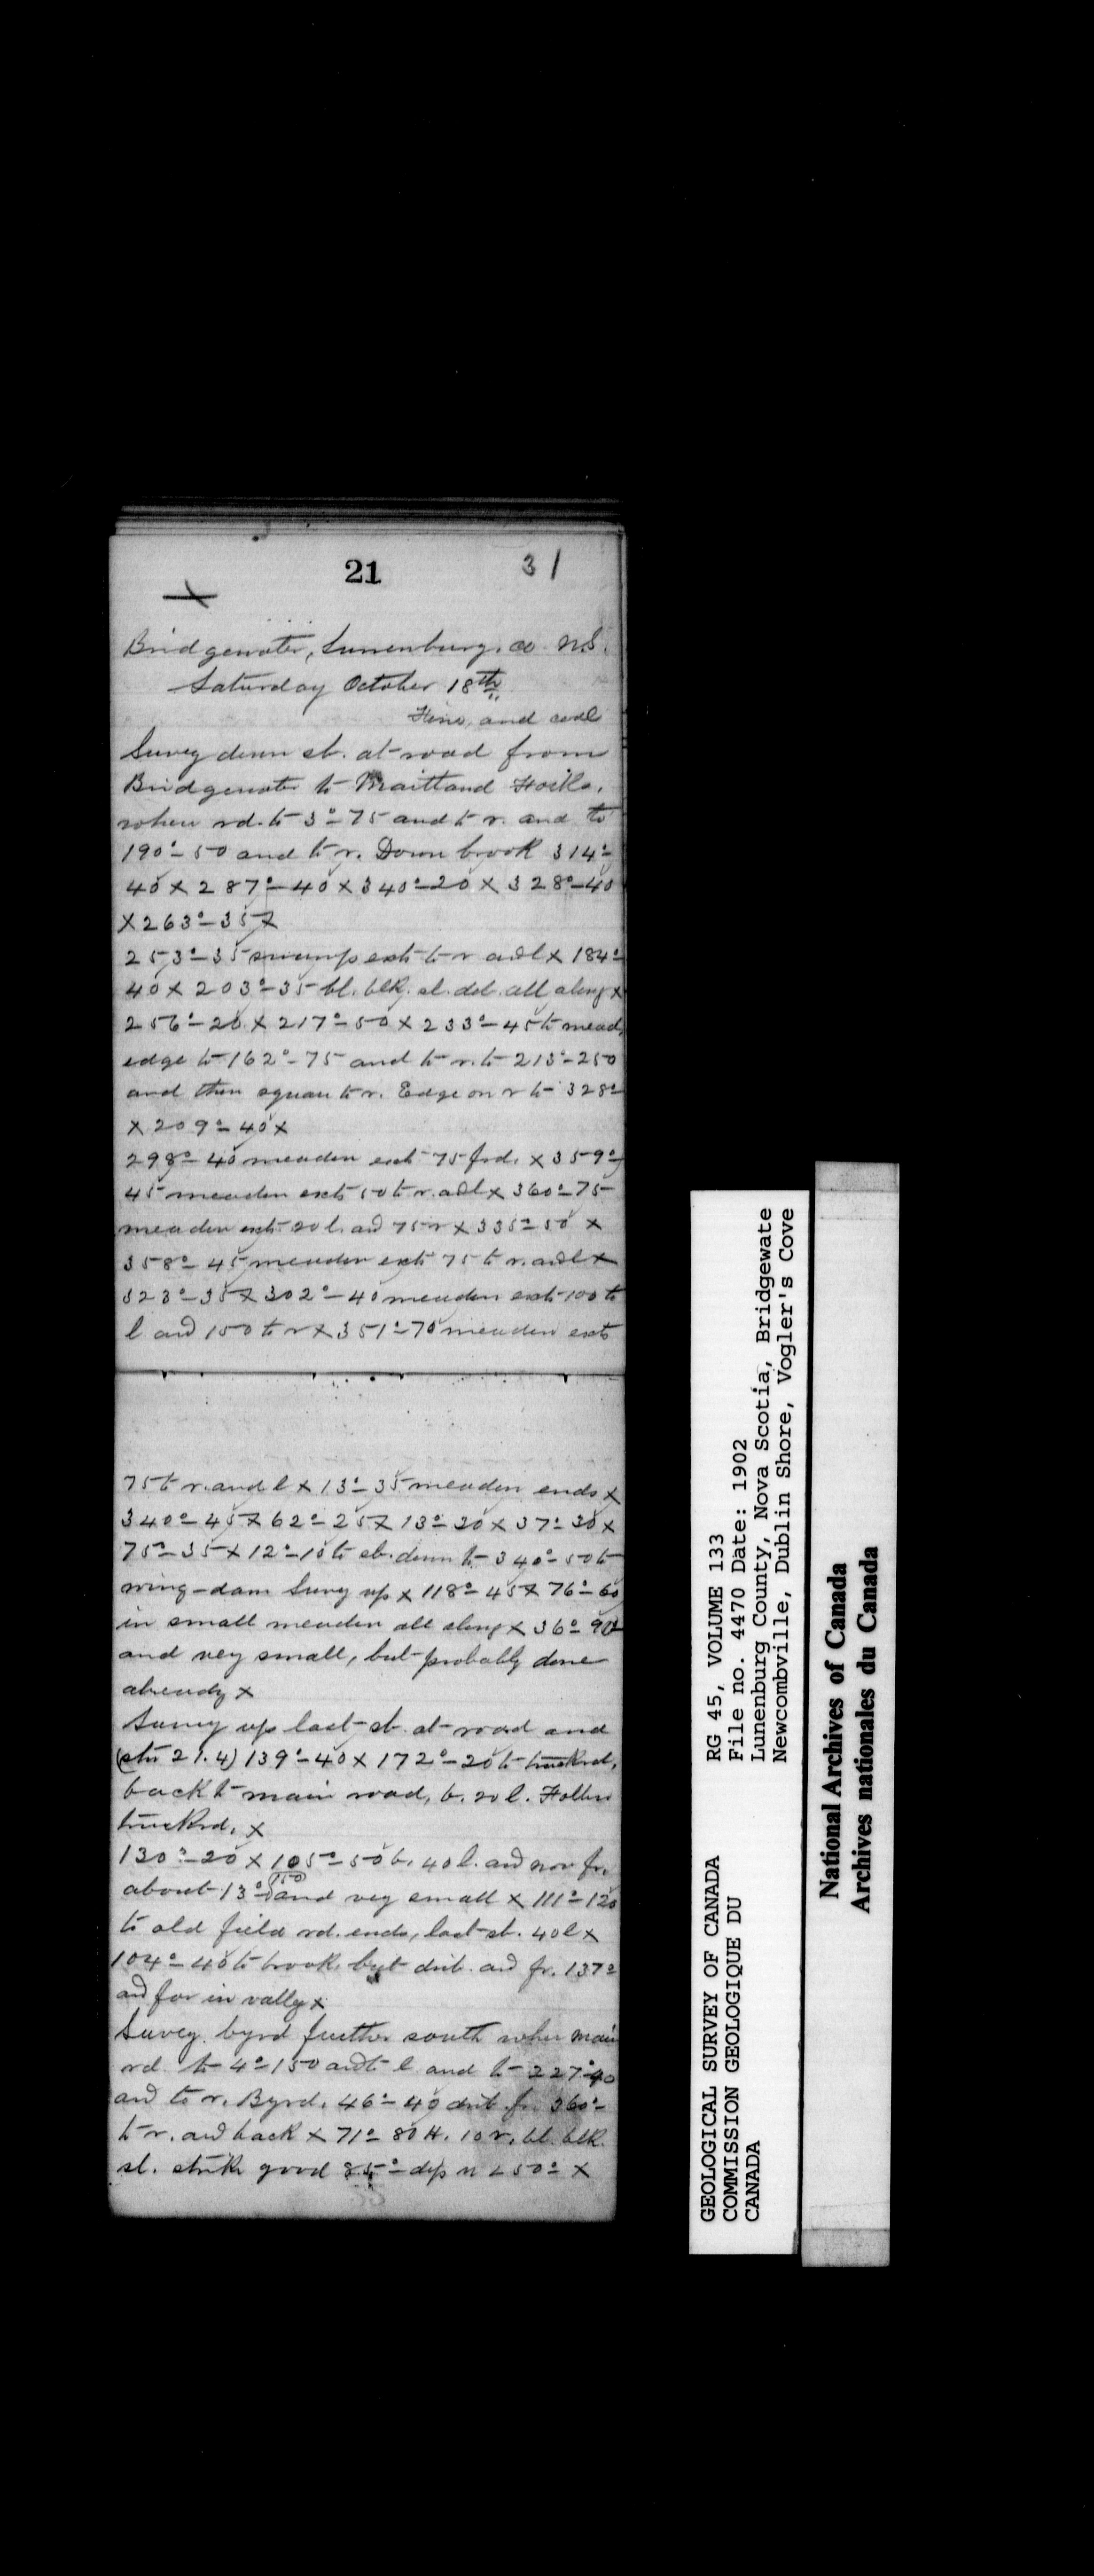 21
31
Bridgewater, Lunenburg, Co N.S.
Saturday October 18th
Fine and cool
Survey down sb. at road from
Bridgewater to Maitland Forks,
where rd. to 3°-75 and to r. and to
190°-50 and to r. Down brook 314°-
40 x 287°-40 x 340°-20 x 328°-40
x 263°-35 x
253°-35 swamp exts to r. and l x 184°-
40 x 203°-35 bl. blk. sl. deb. all along x
256°-20 x 217°-50 x 233°-45 to mead,
edge to 162°-75 and to r. to 213°-250
and then square to r. Edge on r to 328°-
x 209°-40 x
298°-40 meadow exts 75 frd. x 359°-
45 meadow exts 50 to r. and l x 360°-75
meadow exts 20 l. and 75 r x 335°-50 x
358°-45 meadow exts 75 to r. and l x
323°-35 x 302°-40 meadow exts 100 to
l and 150 to r x 351°-70 meadow exts
75 to r. and l x 13°-35 meadow ends x
340°-45 x 62°-25 x 13°-20 x 37°-30 x
75°-35 x 12°-10 to sb. down to 340°-50 to
wing-dam Survey up x 118°-45 x 76°-60
in small meadow all along x 36°-90
and very small, but probably done
already x
Survey up last sb. at road and
(stn 21.4) 139°-40 x 172°-20 to truckrd,
back to main road, b. 20 l. Follow
truckrd. x
130°-20 x 105°-50 b. 40 l. and now fr.
about 13°-150 and very small x 111°-120
to old field rd. ends, last sb. 40 l x
104°-40 to brook, but dist. and fr. 137°
and far in valley x
Survey byrd further south where main
rd. to 4°-150 and to l and to 227°-40
and to r. Byrd. 46°-40 dist. fr. 360°-
to r. and back x 71°-80 H. 10 r. bl. blk.
sl. strike good 85°- dip n < 50° x
RG 45, VOLUME 133
File no. 4470 Date: 1902
Lunenburg County, Nova Scotia, Bridgewate
Newcombville, Dublin Shore, Vogler's Cove
GEOLOGICAL SURVEY OF CANADA
COMMISSION GEOLOGIQUE DU
CANADA
National Archives of Canada
Archives nationales du Canada